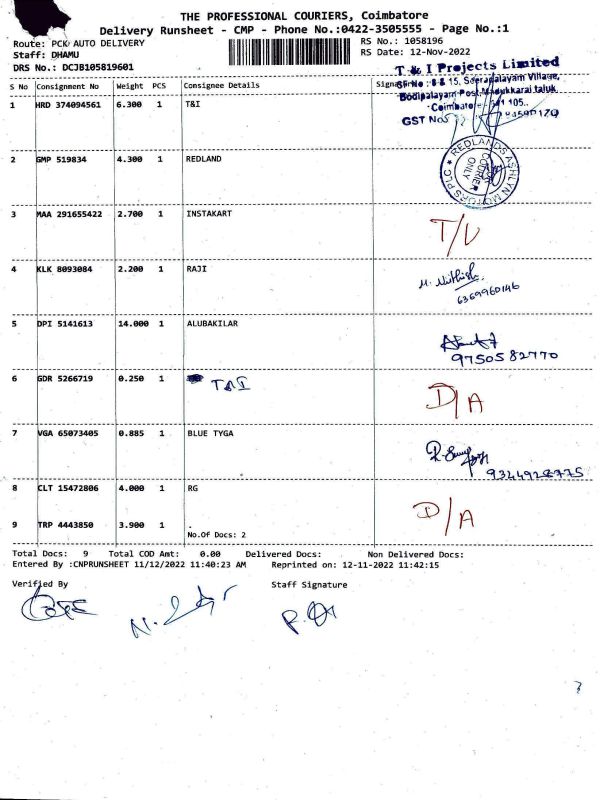 THE PROFESSIONAL COURIERS, Coimbatore
Delivery Runsheet - CMP - Phone No.:0422-3505555 - Page No.:1
Route: PCK AUTO DELIVERY
RS No.: 1058196
Staff: DHAMU
RS Date: 12-Nov-2022
DRS No.: DCJB105819601
T & I Projects Limited
SF No : 8 & 15, Seerapalayam Village,
Bodipalayam Post, Madukkarai taluk,
Coimbatore 641 105.
GST No
S No Consignment No Weight PCS Consignee Details
1 HRD 374094561 6.300 1 T&I
2 GMP 519834 4.300 1 REDLAND
REDLANDS ASHLYN MOTORS PLC
COURIER
ONLY
3 MAA 291655422 2.700 1 INSTAKART
T/U
4 KLK 8093084 2.200 1 RAJI
M. Nithish
6369960146
5 DPI 5141613 14.000 1 ALUBAKILAR
9750582770
6 GDR 5266719 0.250 1 T&I
D/A
7 VGA 65073405 0.885 1 BLUE TYGA
9344928775
8 CLT 15472806 4.000 1 RG
D/A
9 TRP 4443850 3.900 1 .
No.Of Docs: 2
Total Docs: 9 Total COD Amt: 0.00 Delivered Docs: Non Delivered Docs:
Entered By :CNPRUNSHEET 11/12/2022 11:40:23 AM Reprinted on: 12-11-2022 11:42:15
Verified By
Staff Signature